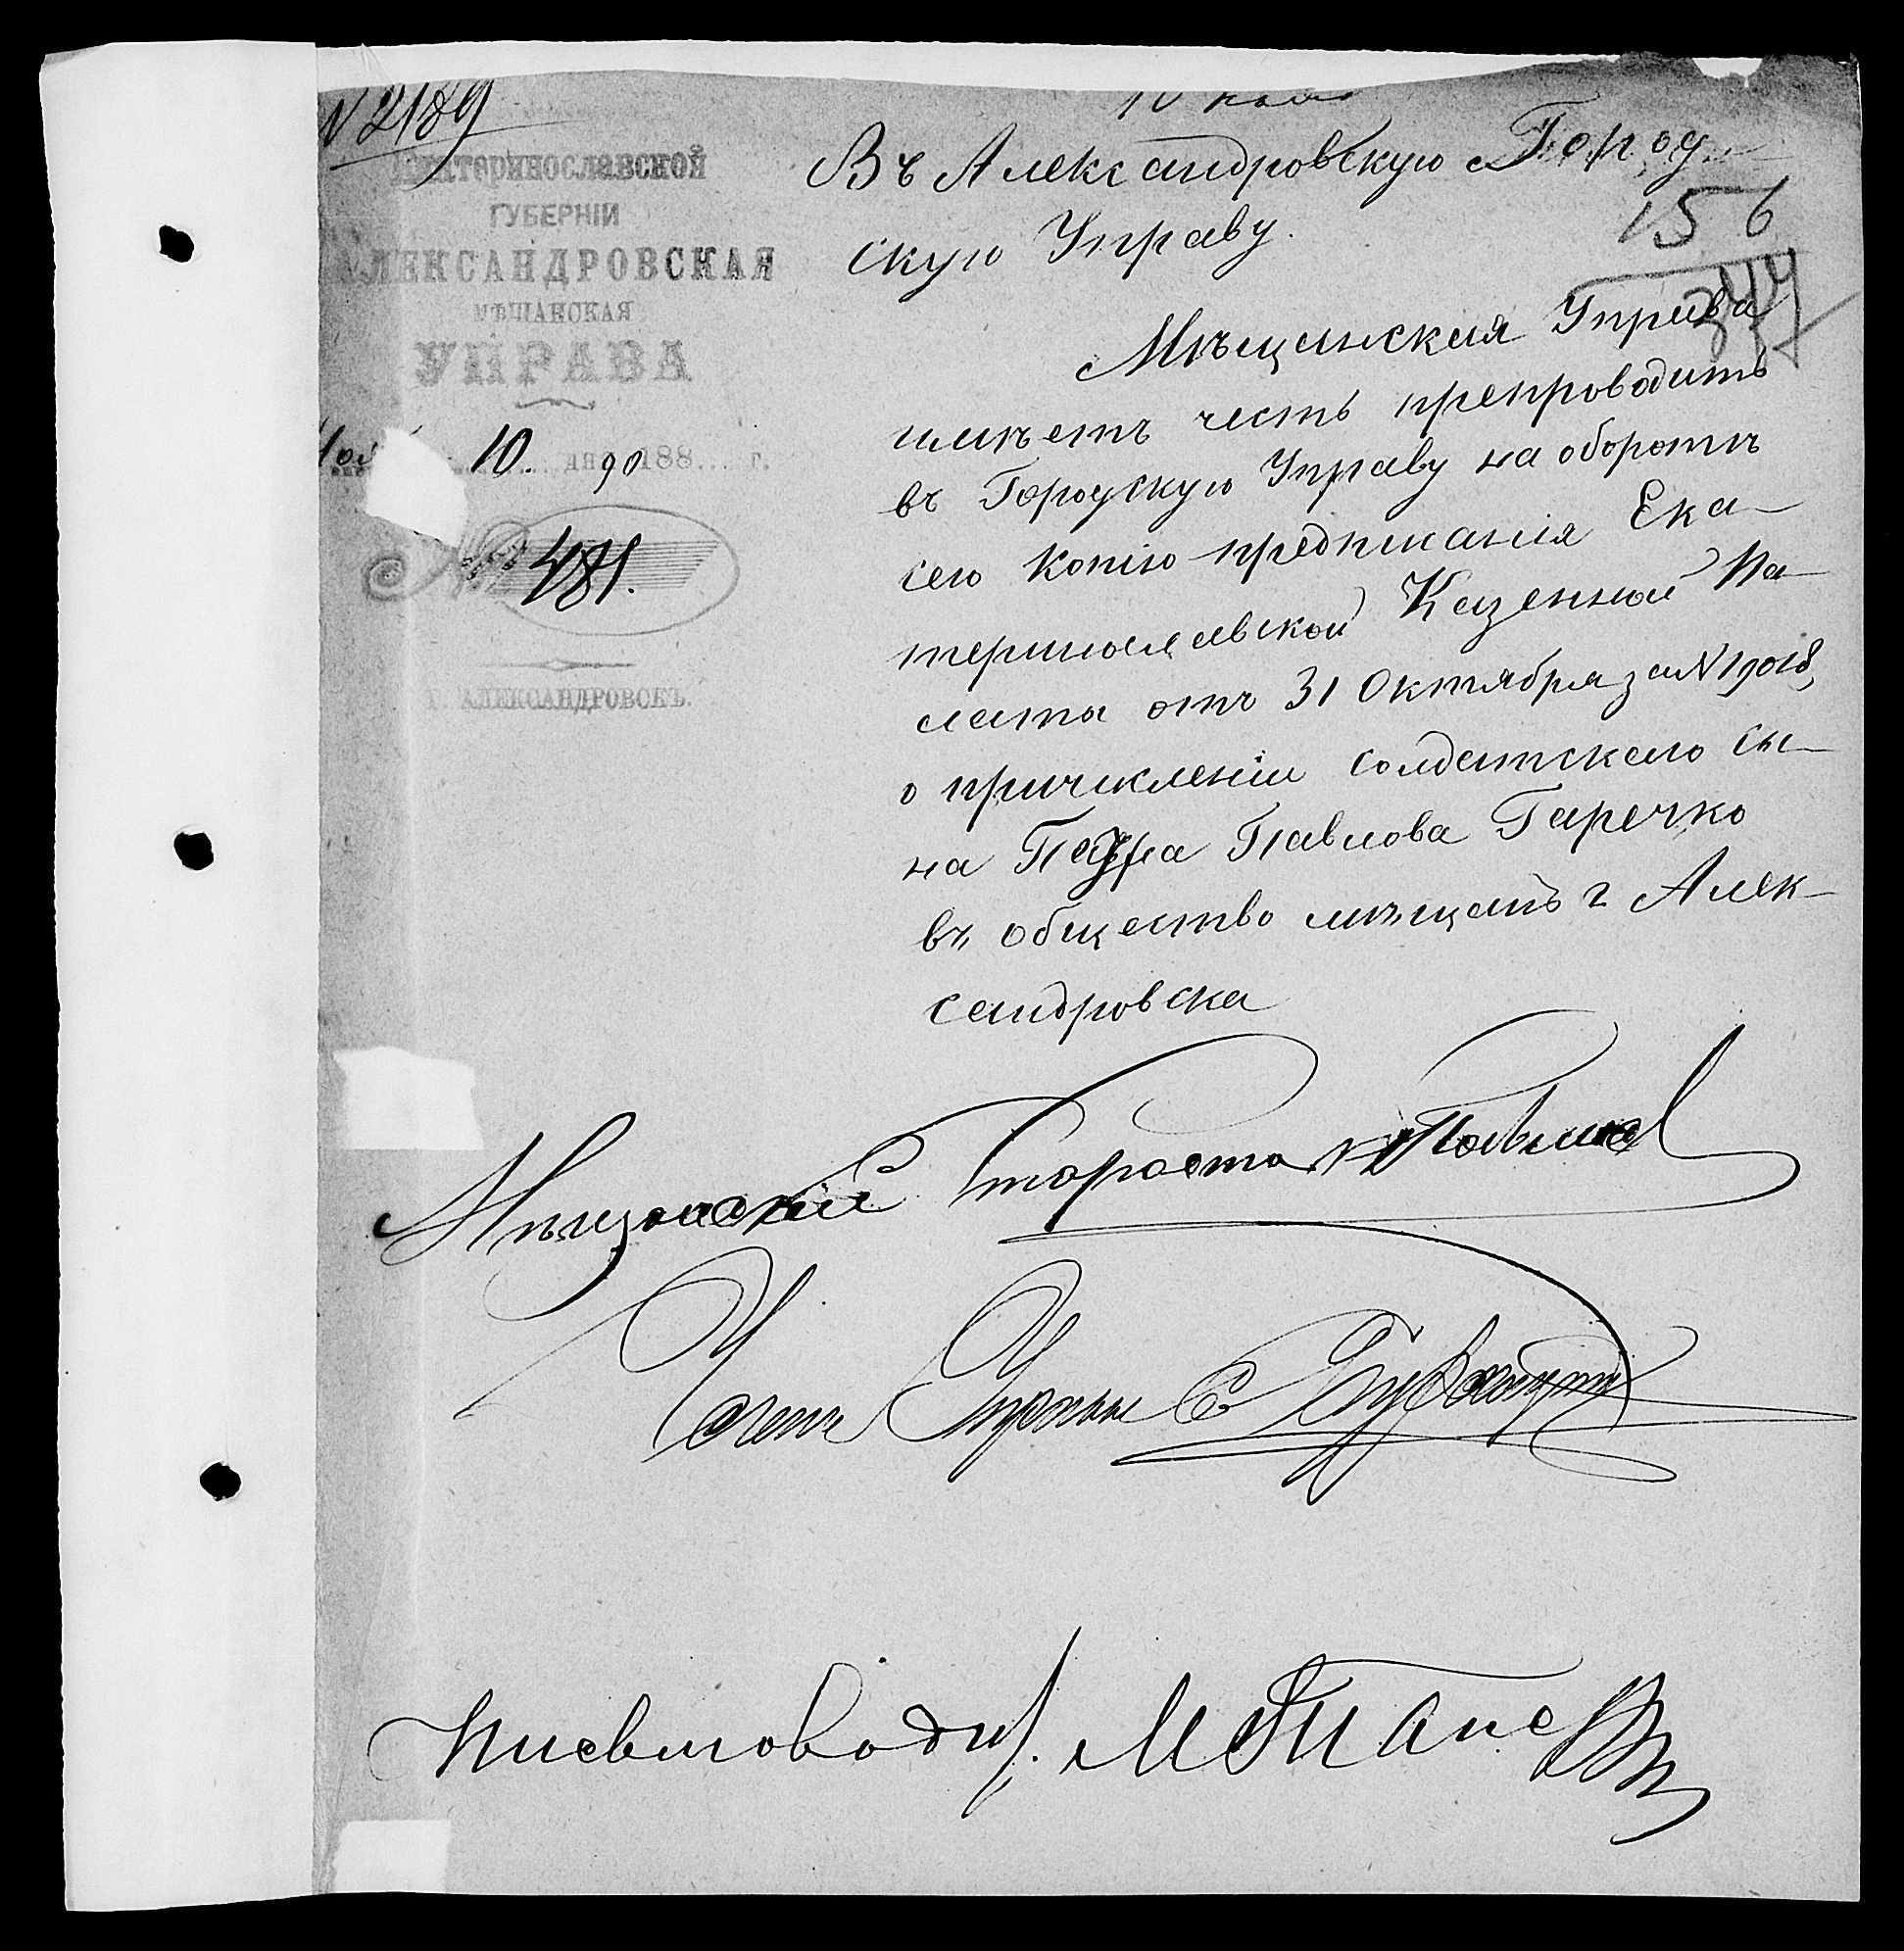 N 2189
Екатеринославской
ГУБЕРНІИ
АЛЕКСАНДРОВСКАЯ
МѢЩАНСКАЯ
УПРАВА
10. дня 1890 г.
№ 481.
Г. АЛЕКСАНДРОВСКЪ.
10 ноя
Въ Александровскую Город
скую Управу.
156
344
Мѣщанская Управа
имѣетъ честь препроводить
въ Городскую Управу на оборотѣ
сего копію предписанія Ека-
теринославской Казенной Па-
латы отъ 31 Октября за N 19018,
о причисленіи солдатскаго сы-
на Павла Павлова Гаречко
въ общество мѣщанъ г Алек-
сандровска
Мѣщанскій Староста
Членъ Управы
Письмоводит.